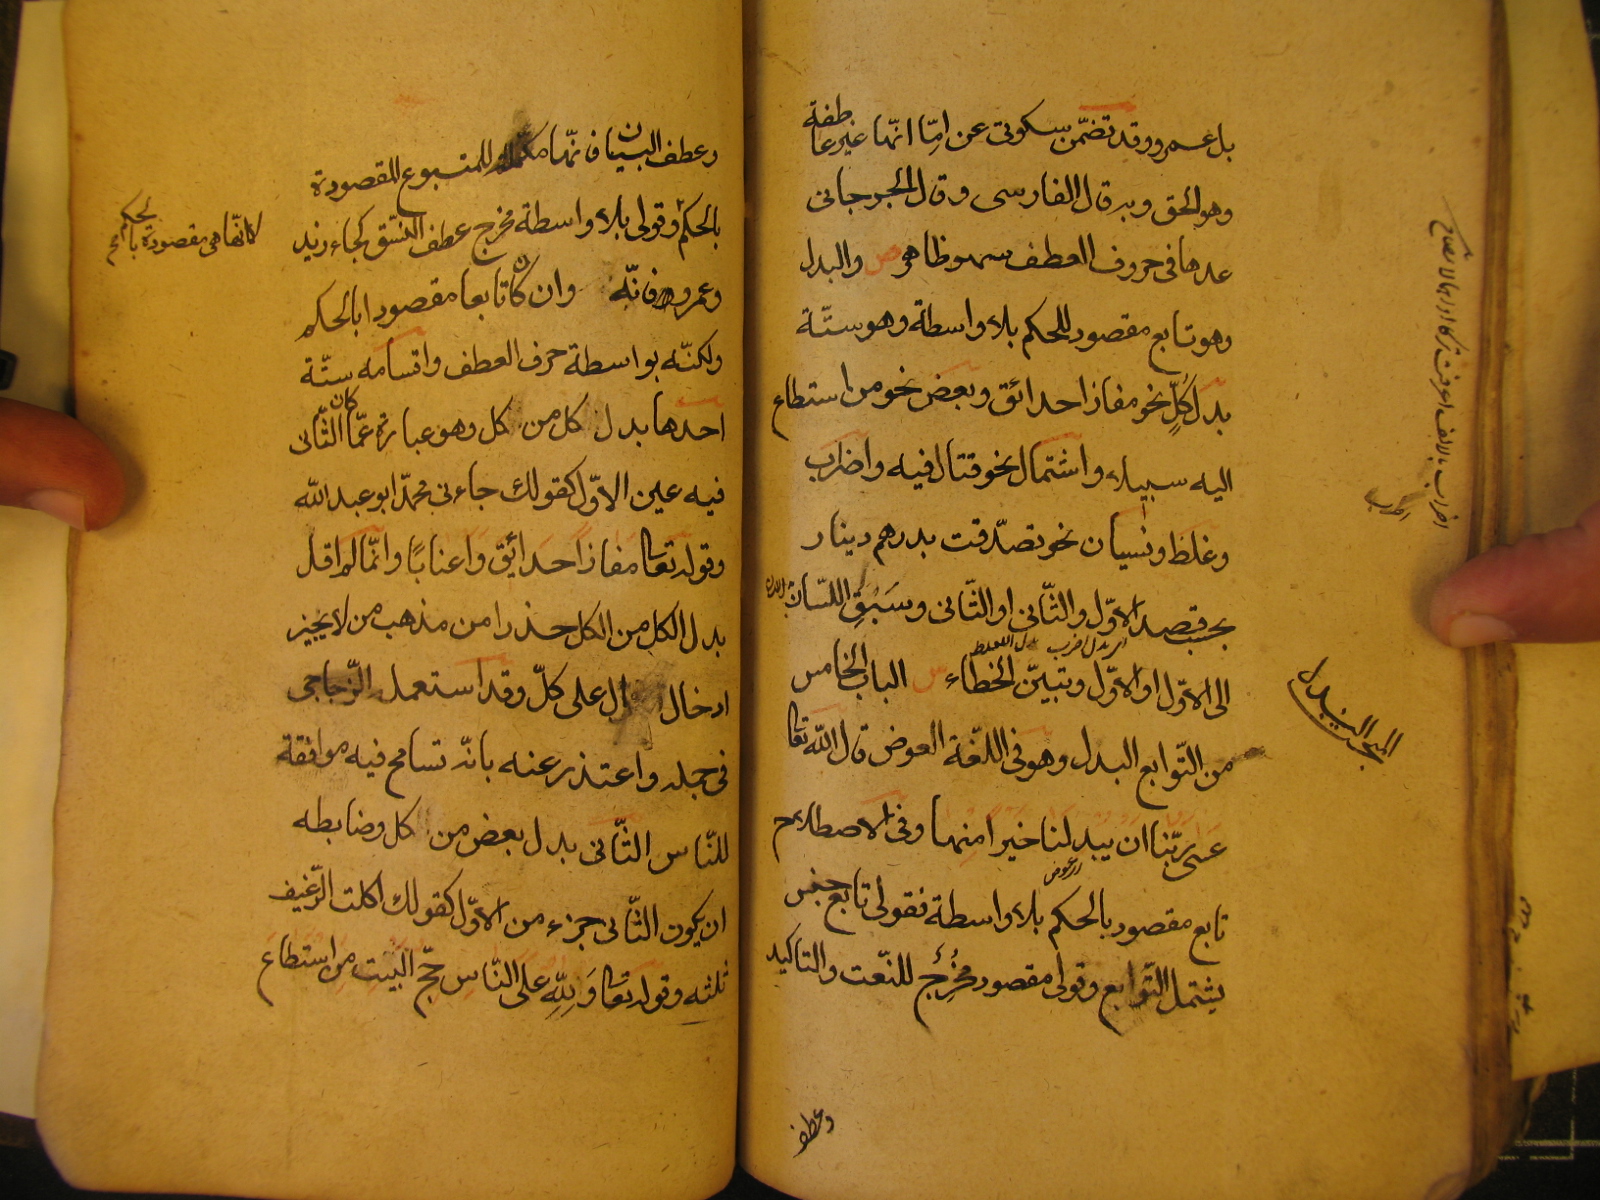 بل عمرو وقد تضمّن سكوتى عن امّا انّها غير عاطفة
وهو الحق وبه قال الفارسى وقال الجرجانى
عدها فى حروف العطف سهو ظاهر ص والبدل
وهو تابع مقصود للحكم بلا واسطة وهو ستّة
بدل كُلٍّ نحو مفازا حدائق وبعض نحو من استطاع
اليه سبيلا واشتمال نحو قتال فيه واضراب
وغلط ونسيان نحو تصدّقت بدرهم دينار
بحسب قصد الاوّل والثّانى او الثّانى وسَبْقِ اللسان
الى الاوّل او الاوّل وتبيّن الخطاء ش الباب الخامس
من التّوابع البدل وهو فى اللغة العوض قال اللّه تعا
عسى ربّنا ان يبدلنا خيرا منها وفى الاصطلاح
اى عوض
تابع مقصود بالحكم بلا واسطة فقولى تابع جنس
يشتمل التّوابع وقولى مقصود مُخْرِجٌ للنّعت والتاكيد
وعطف
وعطف البيان فانّها مكمّلة للمتبوع المقصودة
بالحكم وقولى بلا واسطة مخرج عطف النسق كجاء زيد
لا انّها هى مقصودة بالحكم
وعمرو فانّه وان كان تابعا مقصودا بالحكم
ولكنّه بواسطة حرف العطف واقسامه ستّة
احدها بدل كل من كل وهو عبارة عمّا كان الثّانى
فيه عين الاوّل كقولك جاءنى محمّد ابو عبد اللّه
وقوله تعا مفازًا حَدائِقَ وَاعنابًا وانّما لم اقل
بدل الكل من الكل حذرا من مذهب من لا يجيز
ادخال ال على كلّ وقد استعمل الزّجاجى
فى جمله واعتذر عنه بانّه تسامح فيه موافقة
للنّاس الثّانى بدل بعض من كل وضابطه
ان يكون الثّانى جزء من الاوّل كقولك اكلت الرّغيف
ثلثه وقوله تعا وَلِلّهِ عَلى النّاسِ حجّ البَيتِ مَن استطاع